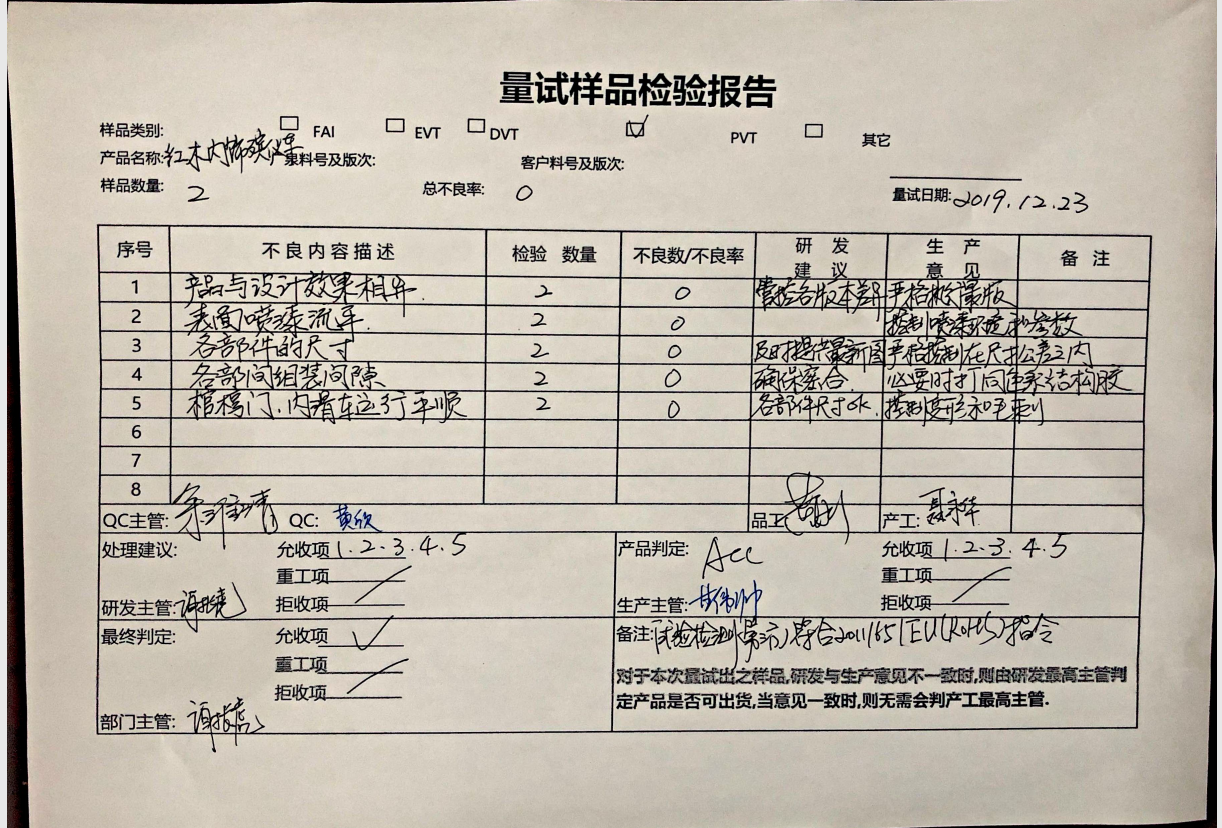 量试样品检验报告
样品类别: FAI EVT DVT PVT 其它
产品名称:红木内饰 料号及版次: 客户料号及版次:
样品数量: 2 总不良率: 0 量试日期: 2019.12.23
序号 不良内容描述 检验 数量 不良数/不良率 研发建议 生产意见 备注
1 产品与设计效果相符. 2 0 管控各版本差异 严格 最新版
2 表面喷漆流平. 2 0 控制喷漆环境和参数
3 各部件的尺寸 2 0 及时提供最新图 严格控制在尺寸公差之内
4 各部间组装间隙 2 0 确保密合. 必要时打同色系结构胶
5 门.内滑车运行平顺 2 0 各部件尺寸ok. 控制变形和毛刺
6
7
8
QC主管: QC: 黄欣 品工: 产工: 聂永华
处理建议: 允收项 1.2.3.4.5 产品判定: Acc 允收项 1.2.3.4.5
重工项 重工项
研发主管: 拒收项 生产主管: 拒收项
最终判定: 允收项 备注: 试验检测 符合2011/65/EU(RoHS)指令
重工项
拒收项
对于本次量试出之样品,研发与生产意见不一致时,则由研发最高主管判
定产品是否可出货,当意见一致时,则无需会判产工最高主管.
部门主管: